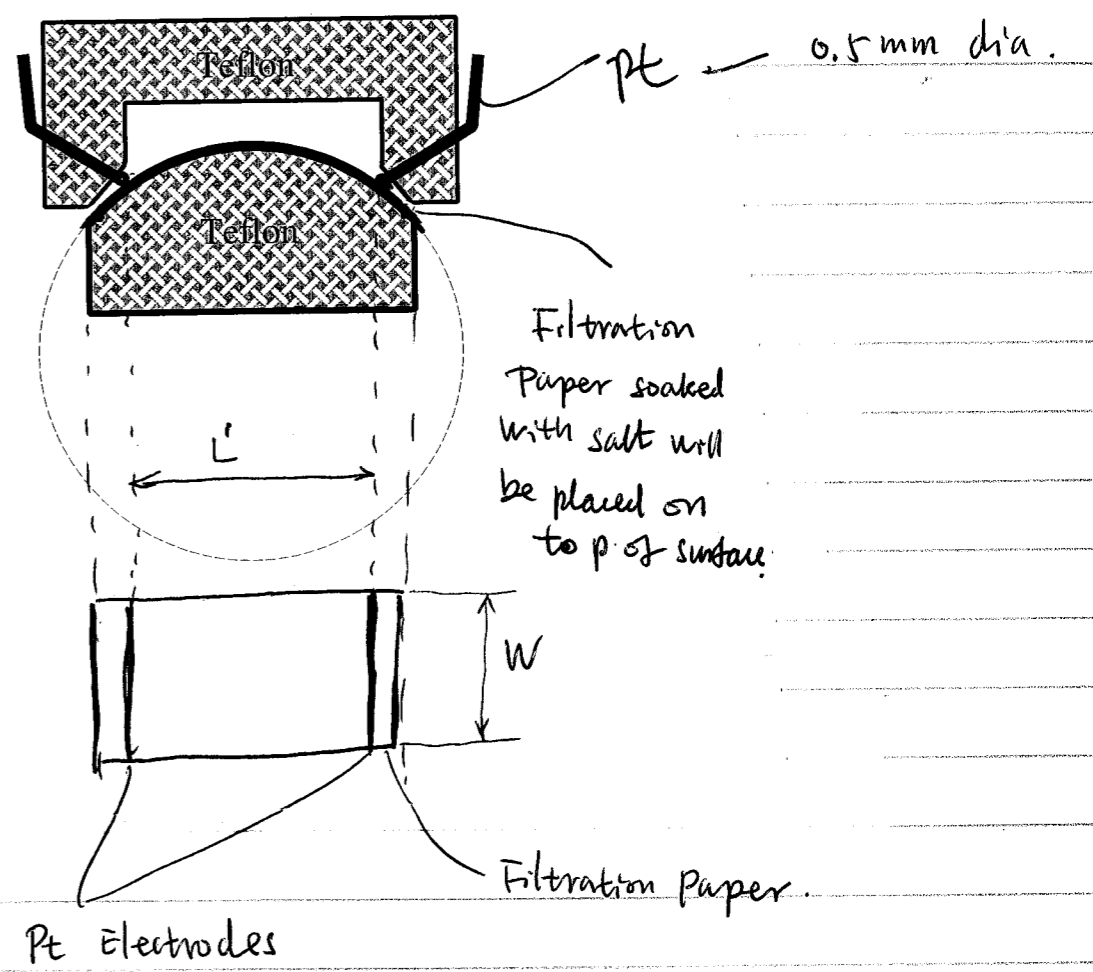 Teflon
Pt
0.5 mm dia.
Teflon
Filtration
Paper soaked
with salt will
be placed on
top of surface.
L'
W
Filtration Paper.
Pt Electrodes